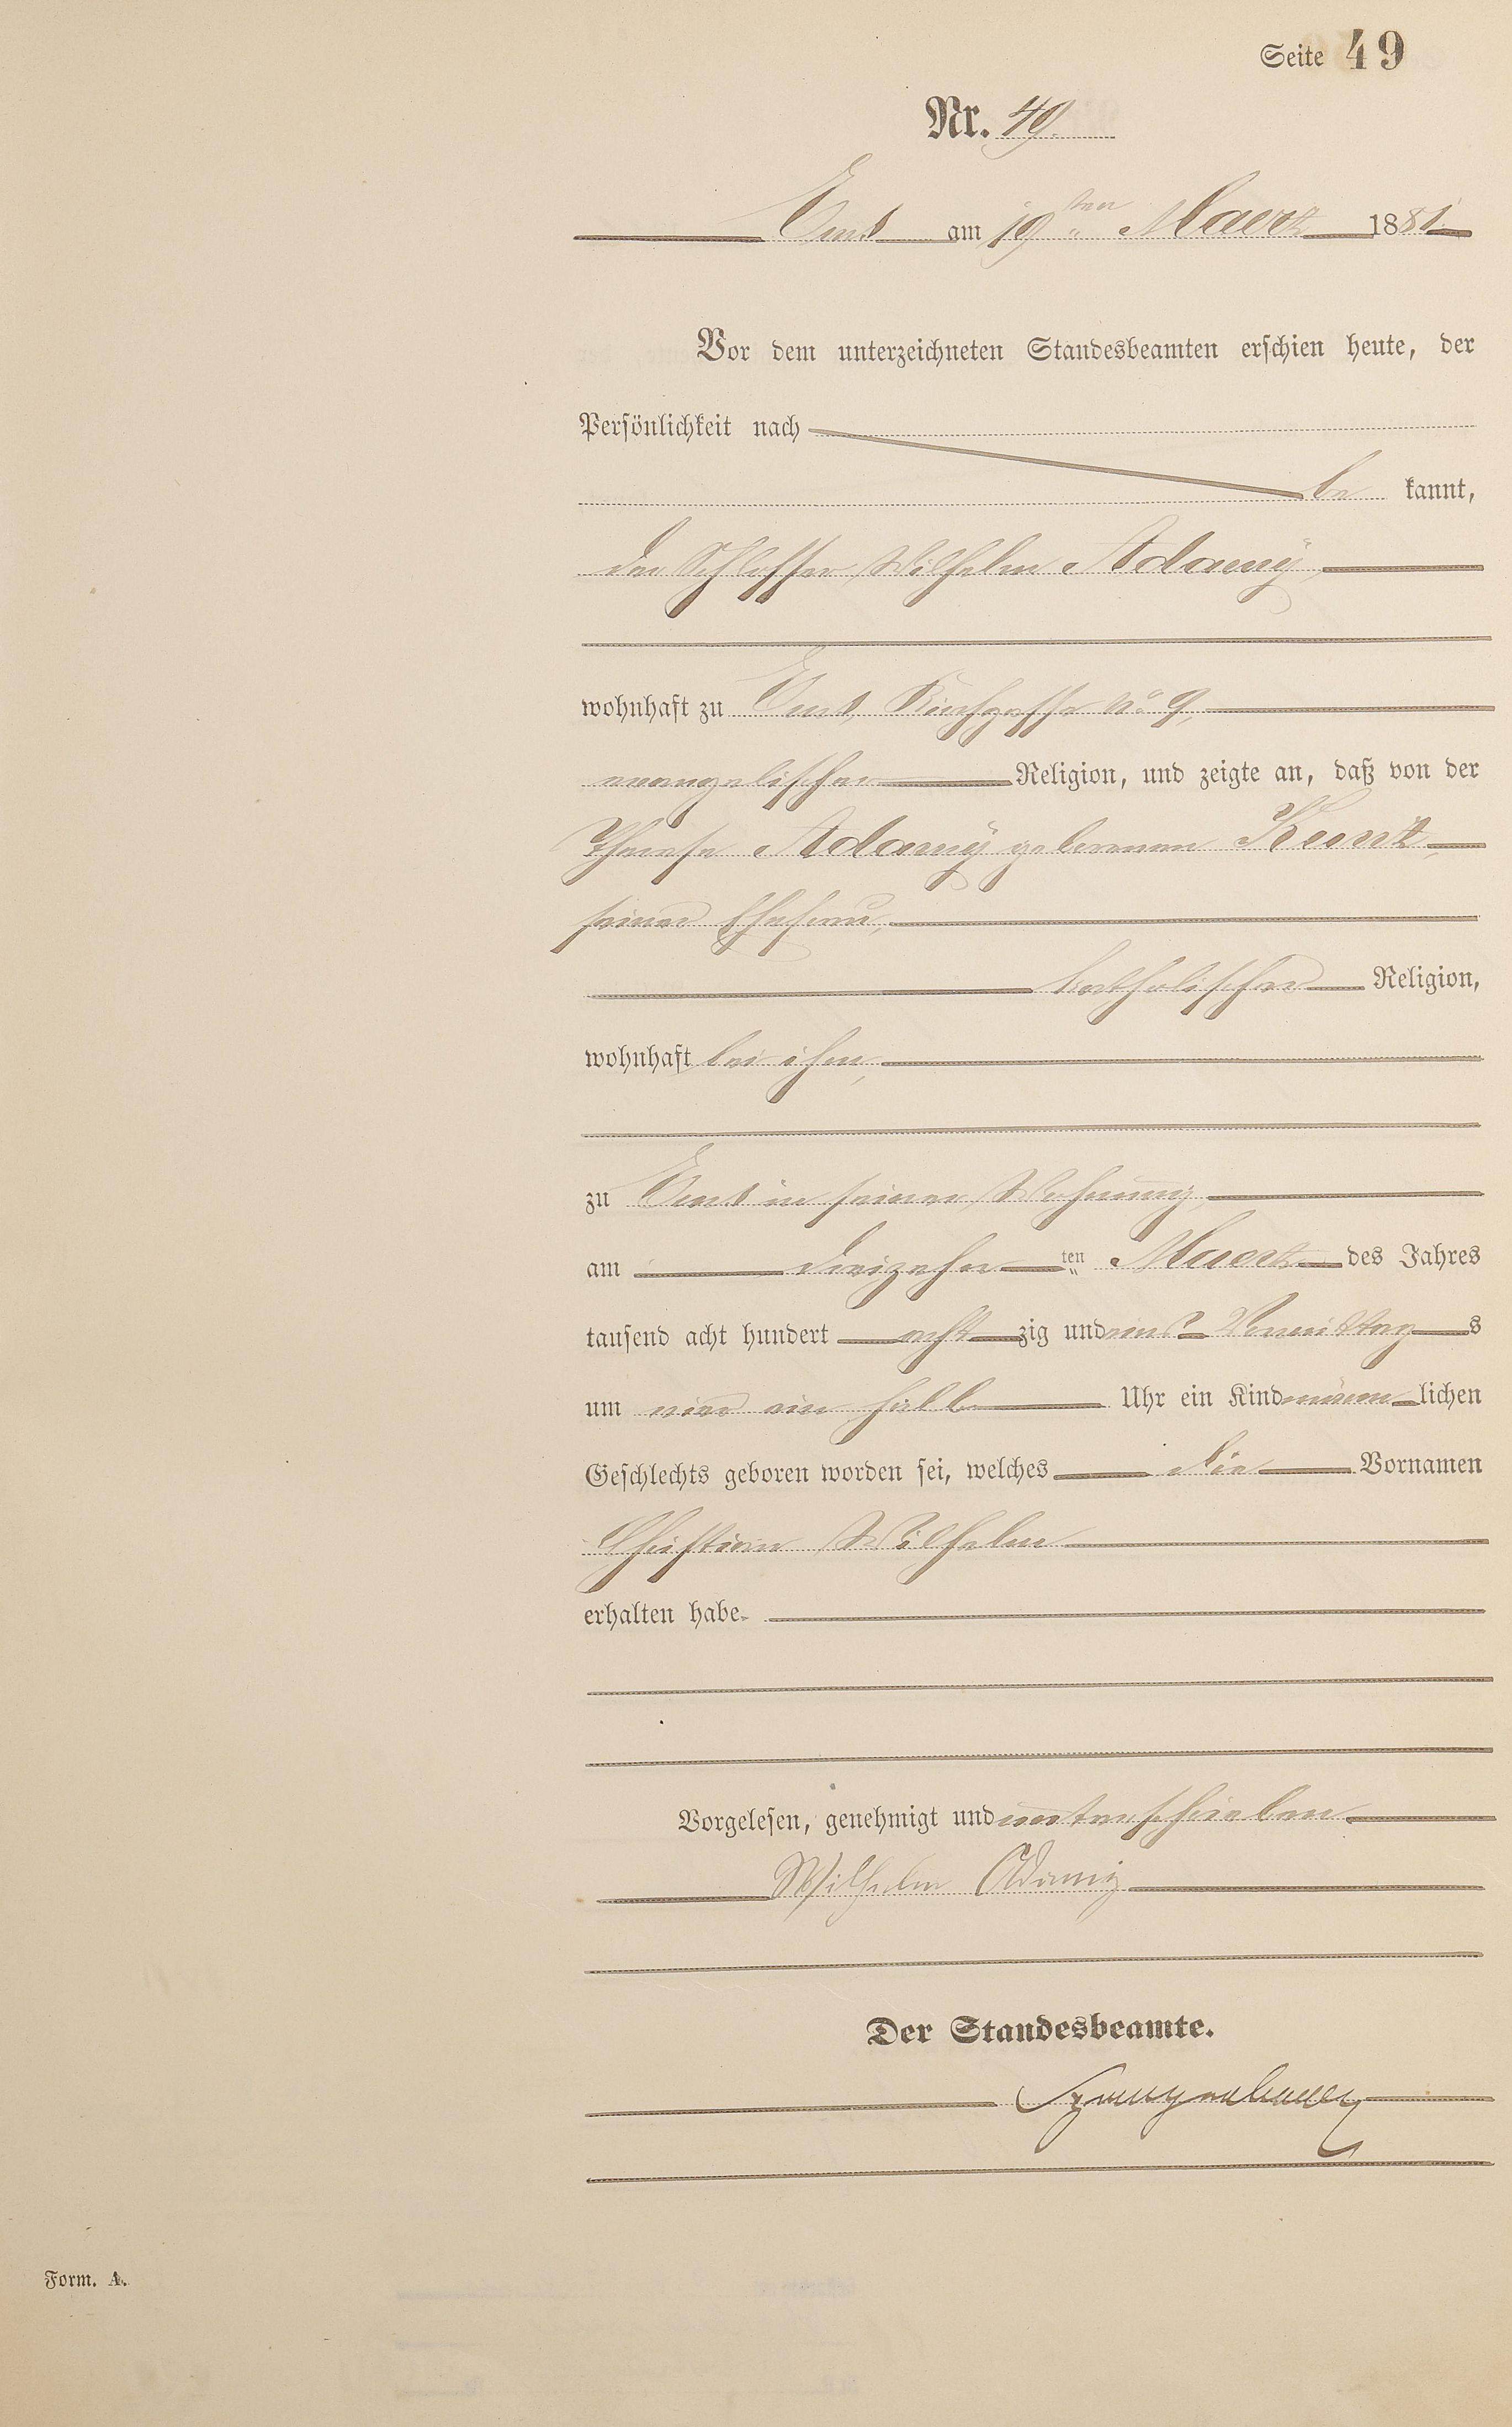 Seite 49
Nr. 49.
Ems am 19ten Maerz 1881
Vor dem unterzeichneten Standesbeamten erschien heute, der
Persönlichkeit nach
be kannt,
der Schlosser Wilhelm Adamÿ,
wohnhaft zu Ems, Kirchgasse No 9,
evangelischer Religion, und zeigte an, daß von der
Therese Adamÿ geborenen Kunz,
seiner Ehefrau,
katholischer Religion,
wohnhaft bei ihm,
zu Ems in seiner Wohnung,
am dreizehn ten Maerz des Jahres
tausend acht hundert acht zig und eins Vormittag s
um vier ein halb Uhr ein Kind männ lichen
Geschlechts geboren worden sei, welches die Vornamen
Christian Wilhelm
erhalten habe.
Vorgelesen, genehmigt und unterschrieben
Wilhelm Adamÿ
Der Standesbeamte.
Form. A.